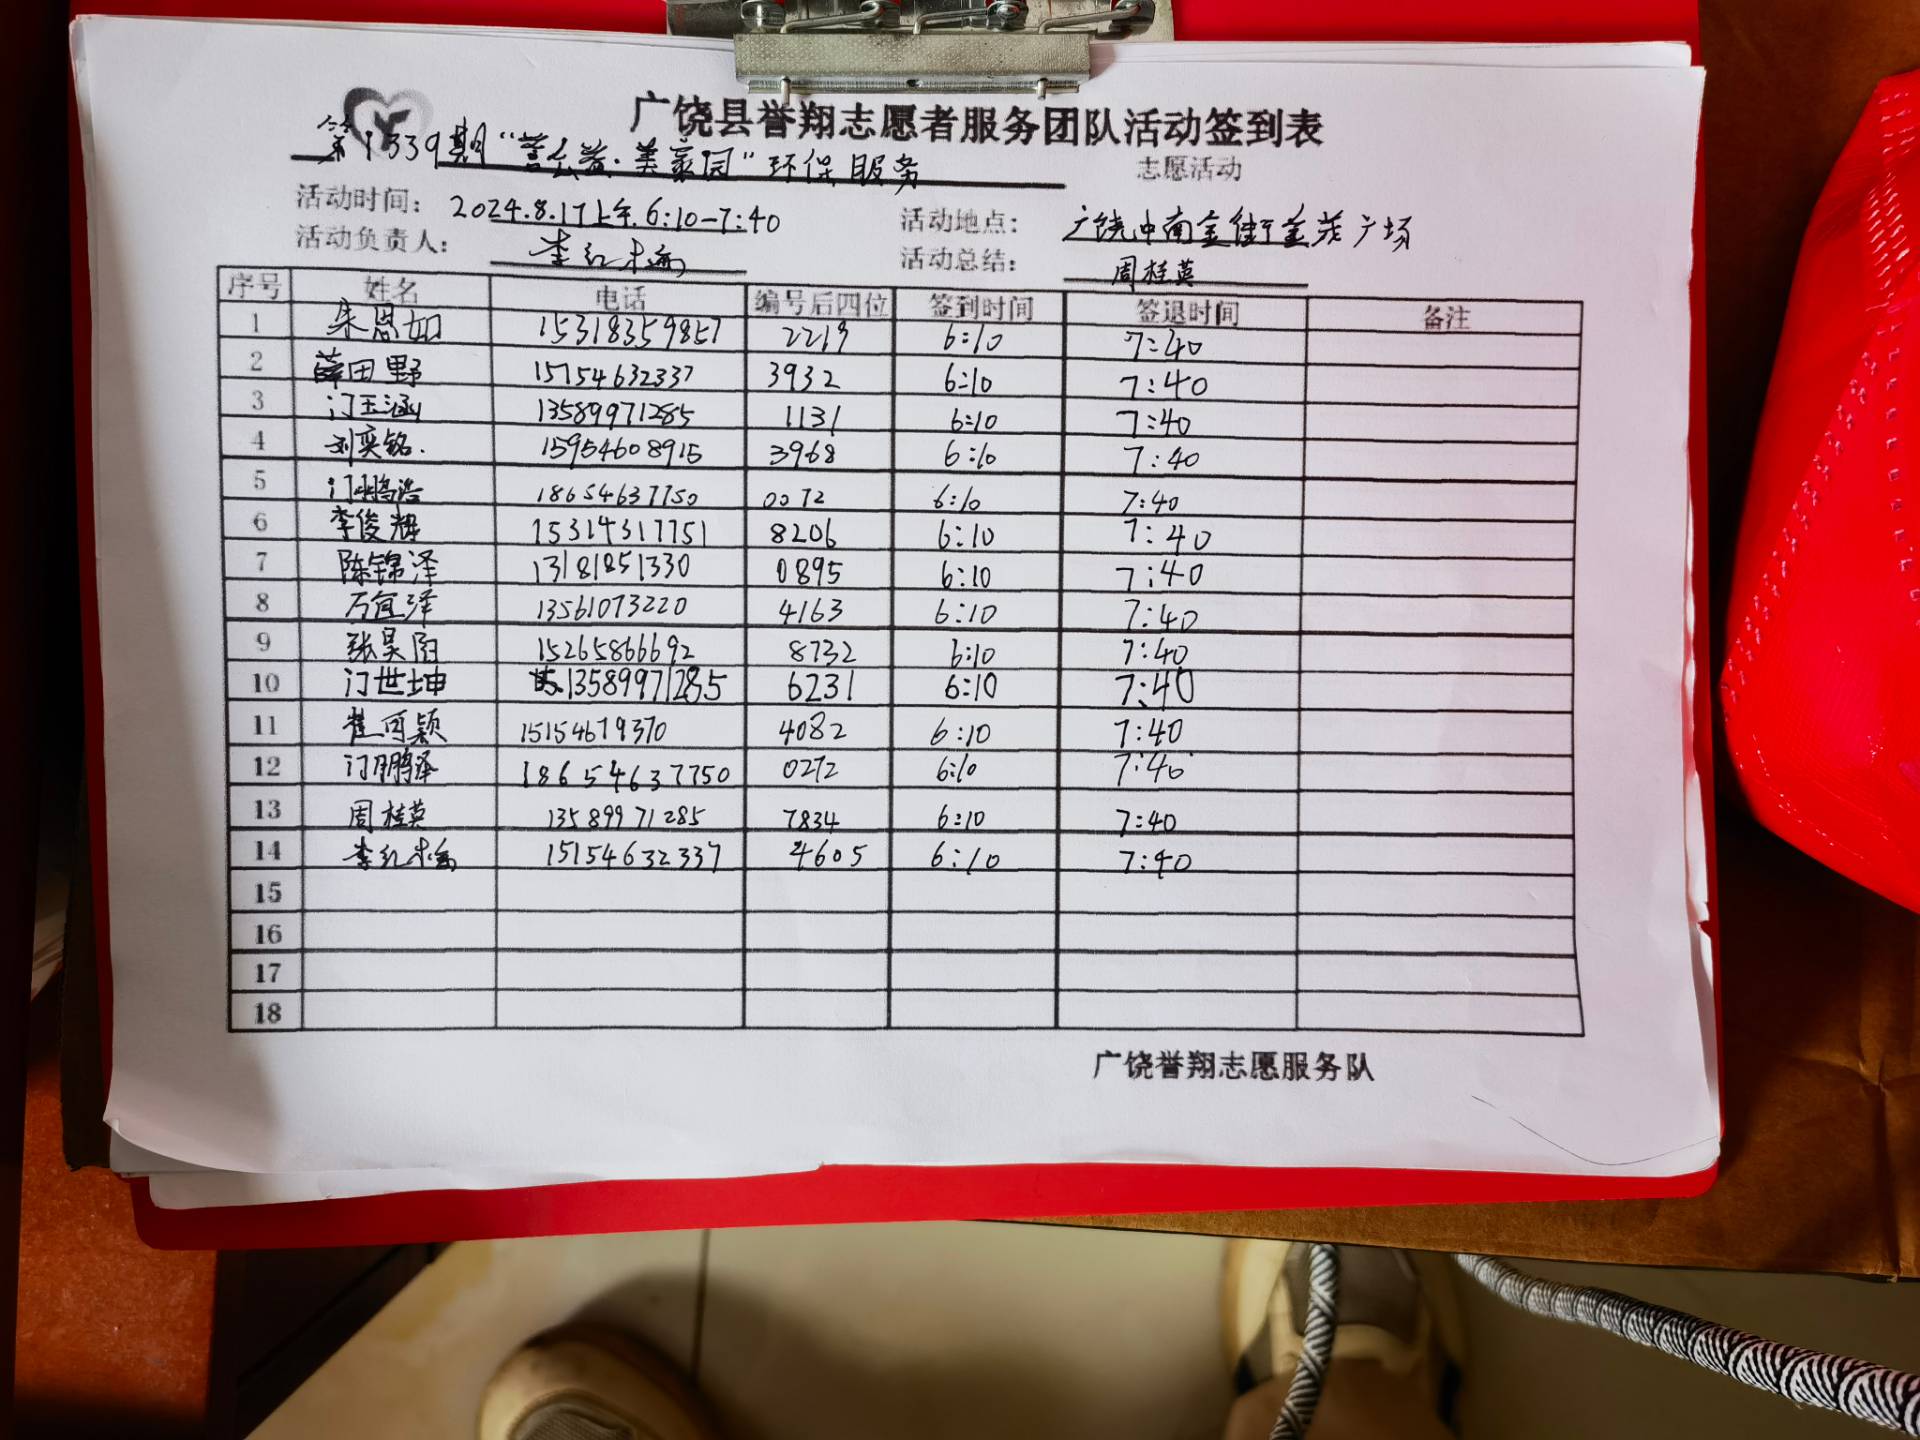 广饶县誉翔志愿者服务团队活动签到表
第1339期“营公益·美家园”环保服务 志愿活动
活动时间： 2024.8.17上午.6:10-7:40 活动地点： 广饶中南金街金茂广场
活动负责人： 李红梅 活动总结： 周桂英
序号 姓名 电话 编号后四位 签到时间 签退时间 备注
1 朱恩如 15318359857 2219 6:10 7:40
2 薛田野 15154632337 3932 6:10 7:40
3 门玉涵 13589971285 1131 6:10 7:40
4 刘奕铭. 15954608915 3968 6:10 7:40
5 门鹏浩 18654637750 0072 6:10 7:40
6 李俊翔 15314317751 8206 6:10 7:40
7 陈锦泽 13181851330 0895 6:10 7:40
8 万宜泽 13561073220 4163 6:10 7:40
9 张昊阳 15265866692 8732 6:10 7:40
10 门世坤 13589971285 6231 6:10 7:40
11 崔可颖 15154679370 4082 6:10 7:40
12 门鹏泽 18654637750 0272 6:10 7:40
13 周桂英 13589971285 7834 6:10 7:40
14 李红梅 15154632337 4605 6:10 7:40
15
16
17
18
广饶誉翔志愿服务队